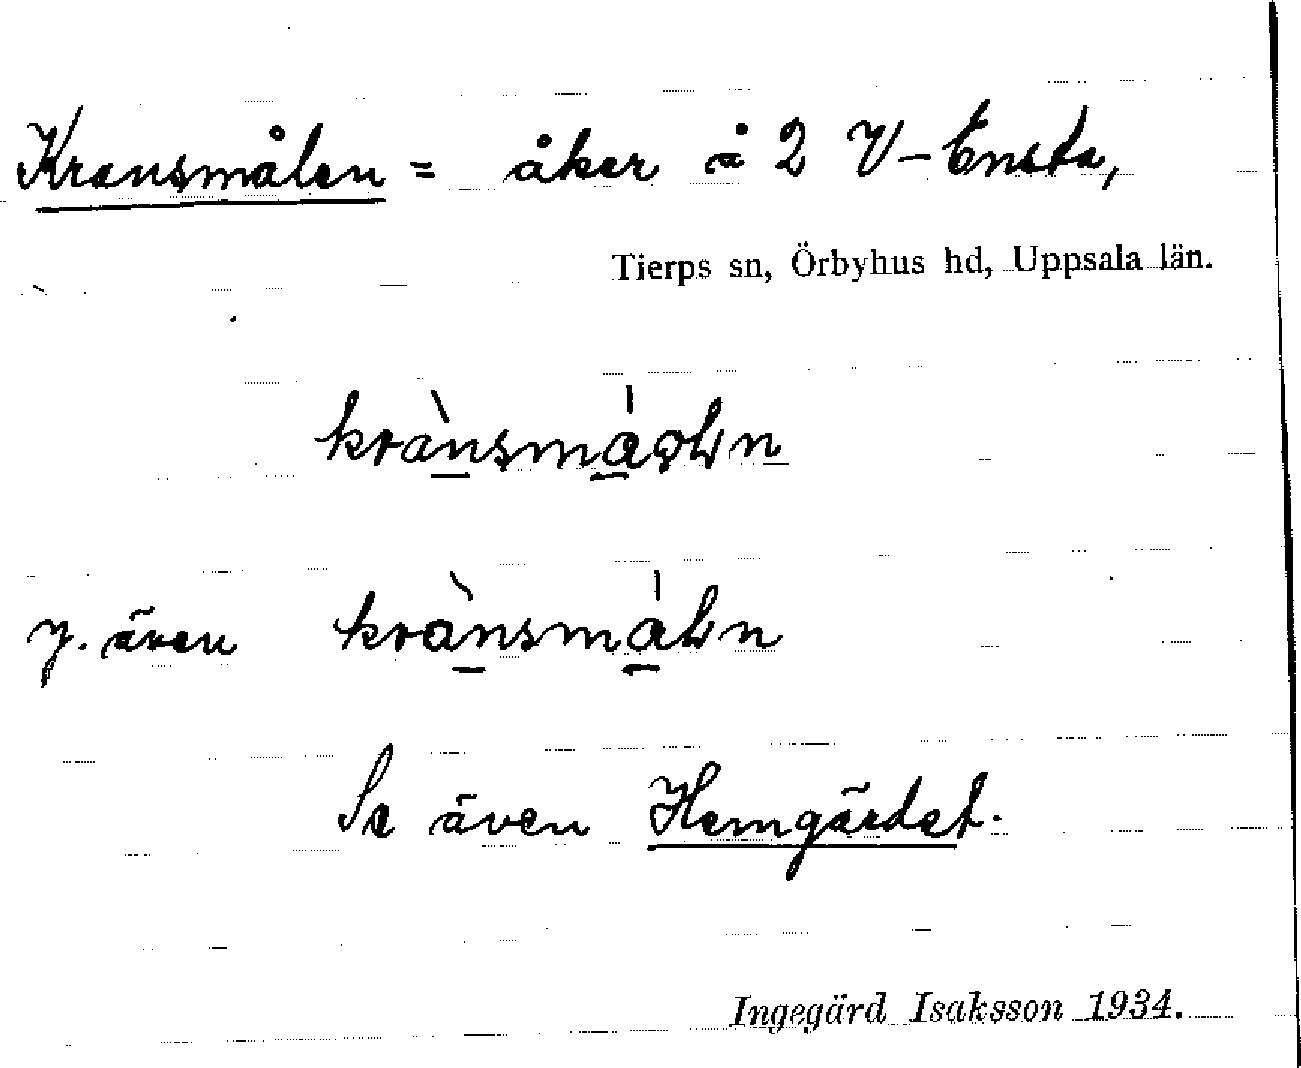 Kransmålen = åker å 2 V-Ensta,
Tierps sn, Örbyhus hd, Uppsala län.
krànsmáoLn
y. även krànsmáLn
Se även Hemgärdet.
Ingegärd Isaksson 1934.